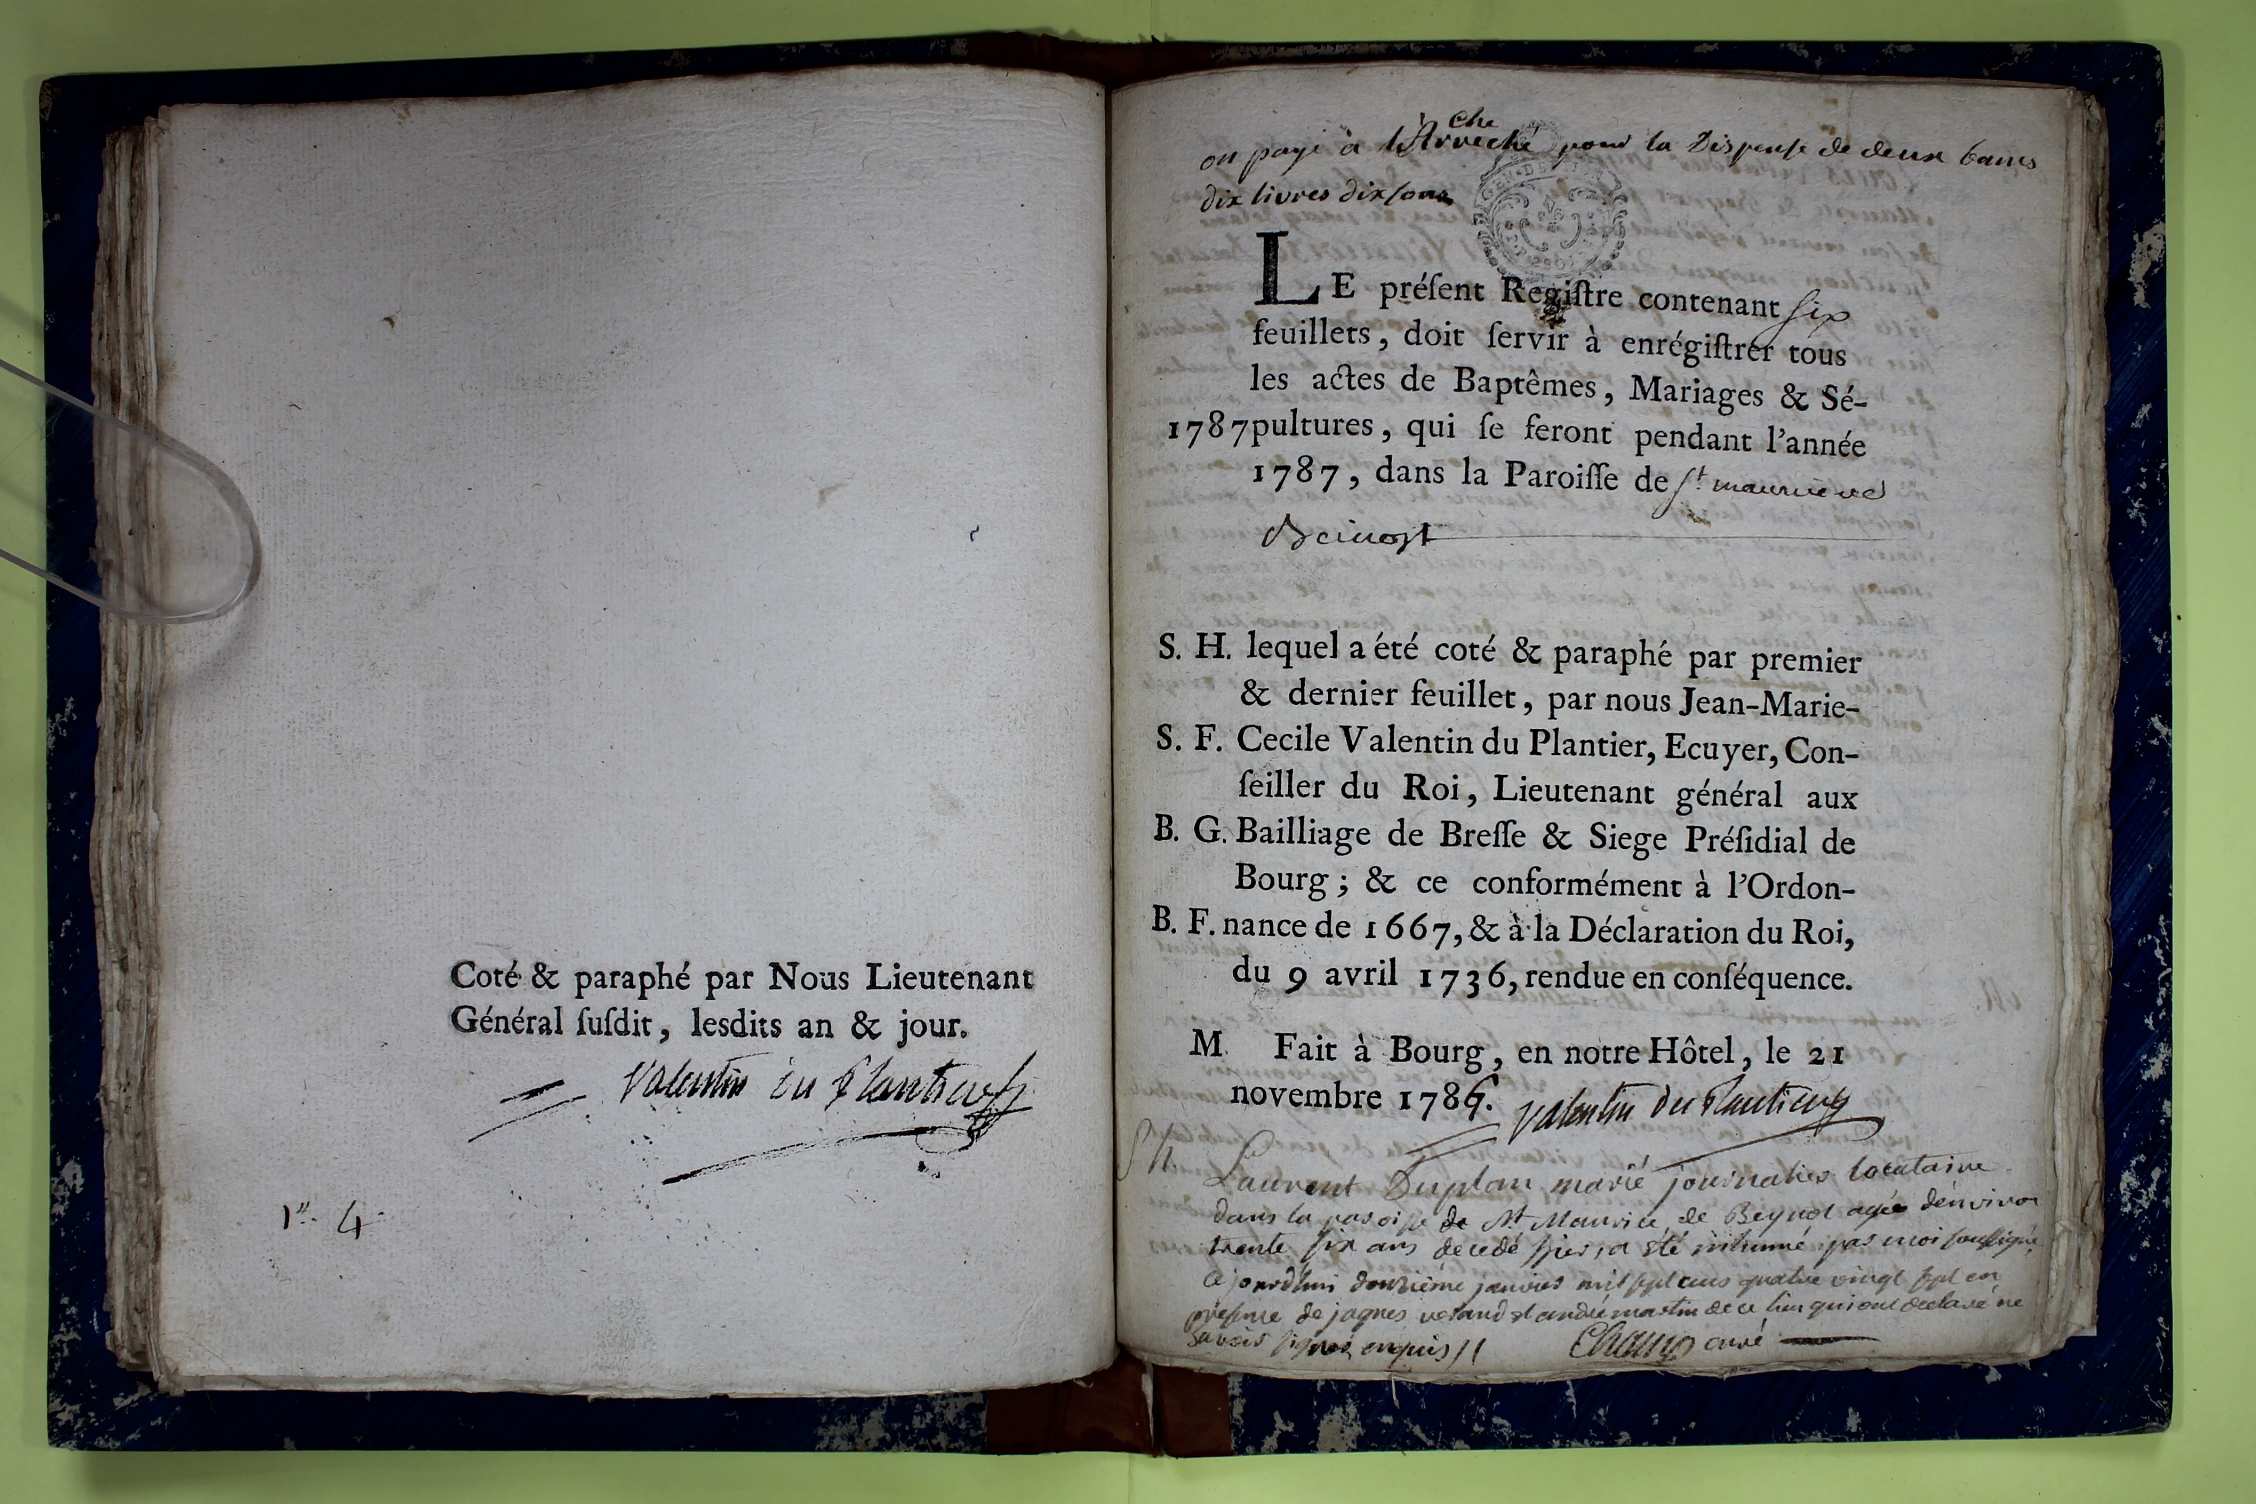 Coté & paraphé par Nous Lieutenant
Général ſuſdit, lesdits an & jour.
Valentin du Plantier
1er. 4
on payé à l'Arveché
che
pour la Dispense de deux bans
dix livres dix sous
LE préſent Regiſtre contenant six
feuillets, doit ſervir à enrégiſtrer tous
les actes de Baptêmes, Mariages & Sé-
1787 pultures, qui ſe feront pendant l'année
1787, dans la Paroiſſe de st maurice de
Beinost
S. H. lequel a été coté & paraphé par premier
& dernier feuillet, par nous Jean-Marie-
S. F. Cecile Valentin du Plantier, Ecuyer, Con-
ſeiller du Roi, Lieutenant général aux
B. G. Bailliage de Breſſe & Siege Préſidial de
Bourg; & ce conformément à l'Ordon-
B. F. nance de 1667, & à la Déclaration du Roi,
du 9 avril 1736, rendue en conſéquence.
M Fait à Bourg, en notre Hôtel, le 21
novembre 1786. Valentin du Plantier
SH. Laurent Duplan marié journalier locataire
dans la paroisse de St Maurice de Beynot agée dénviron
trente six ans decedé hier, a été inhumé par moi soussigné
ce jourdhui douzième janvier mil sept cens quatre vingt sept en
présence de jaques verand et andré martin de ce lieu qui ont declaré ne
savoir signer enquis // Champ curé